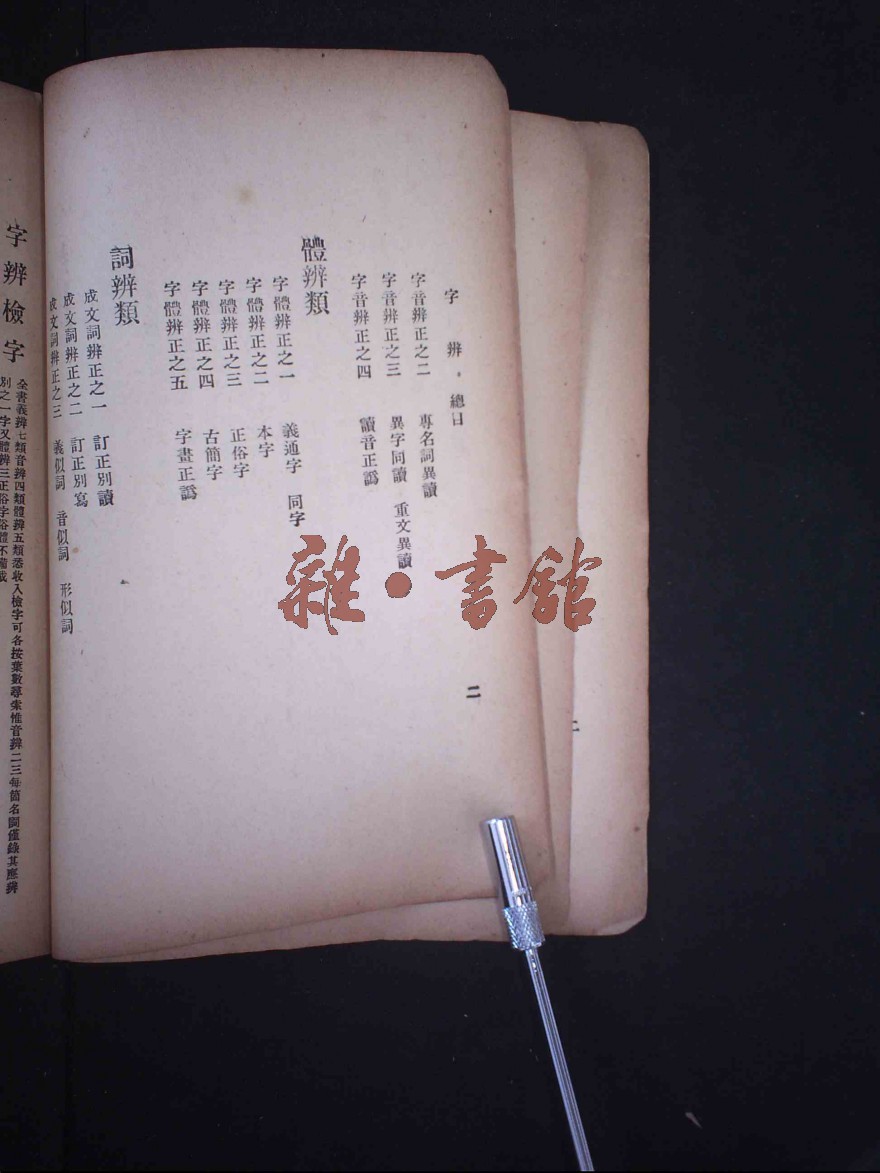 字辨。總目
字音辨正之二　專名詞異讀
字音辨正之三　異字同讀　重文異讀
字音辨正之四　讀音正譌
體辨類
字體辨正之一　義通字　同字
字體辨正之二　本字
字體辨正之三　正俗字
字體辨正之四　古簡字
字體辨正之五　字畫正譌
詞辨類
成文詞辨正之一　訂正別讀
成文詞辨正之二　訂正別寫
成文詞辨正之三　義似詞　音似詞　形似詞
二
字辨檢字
全書義辨七類音辨四類體辨五類悉收入檢字可各按葉數尋索惟音辨二三每箇名詞僅錄其應辨
別之一字又體辨三正俗字俗體不備載
雜·書館